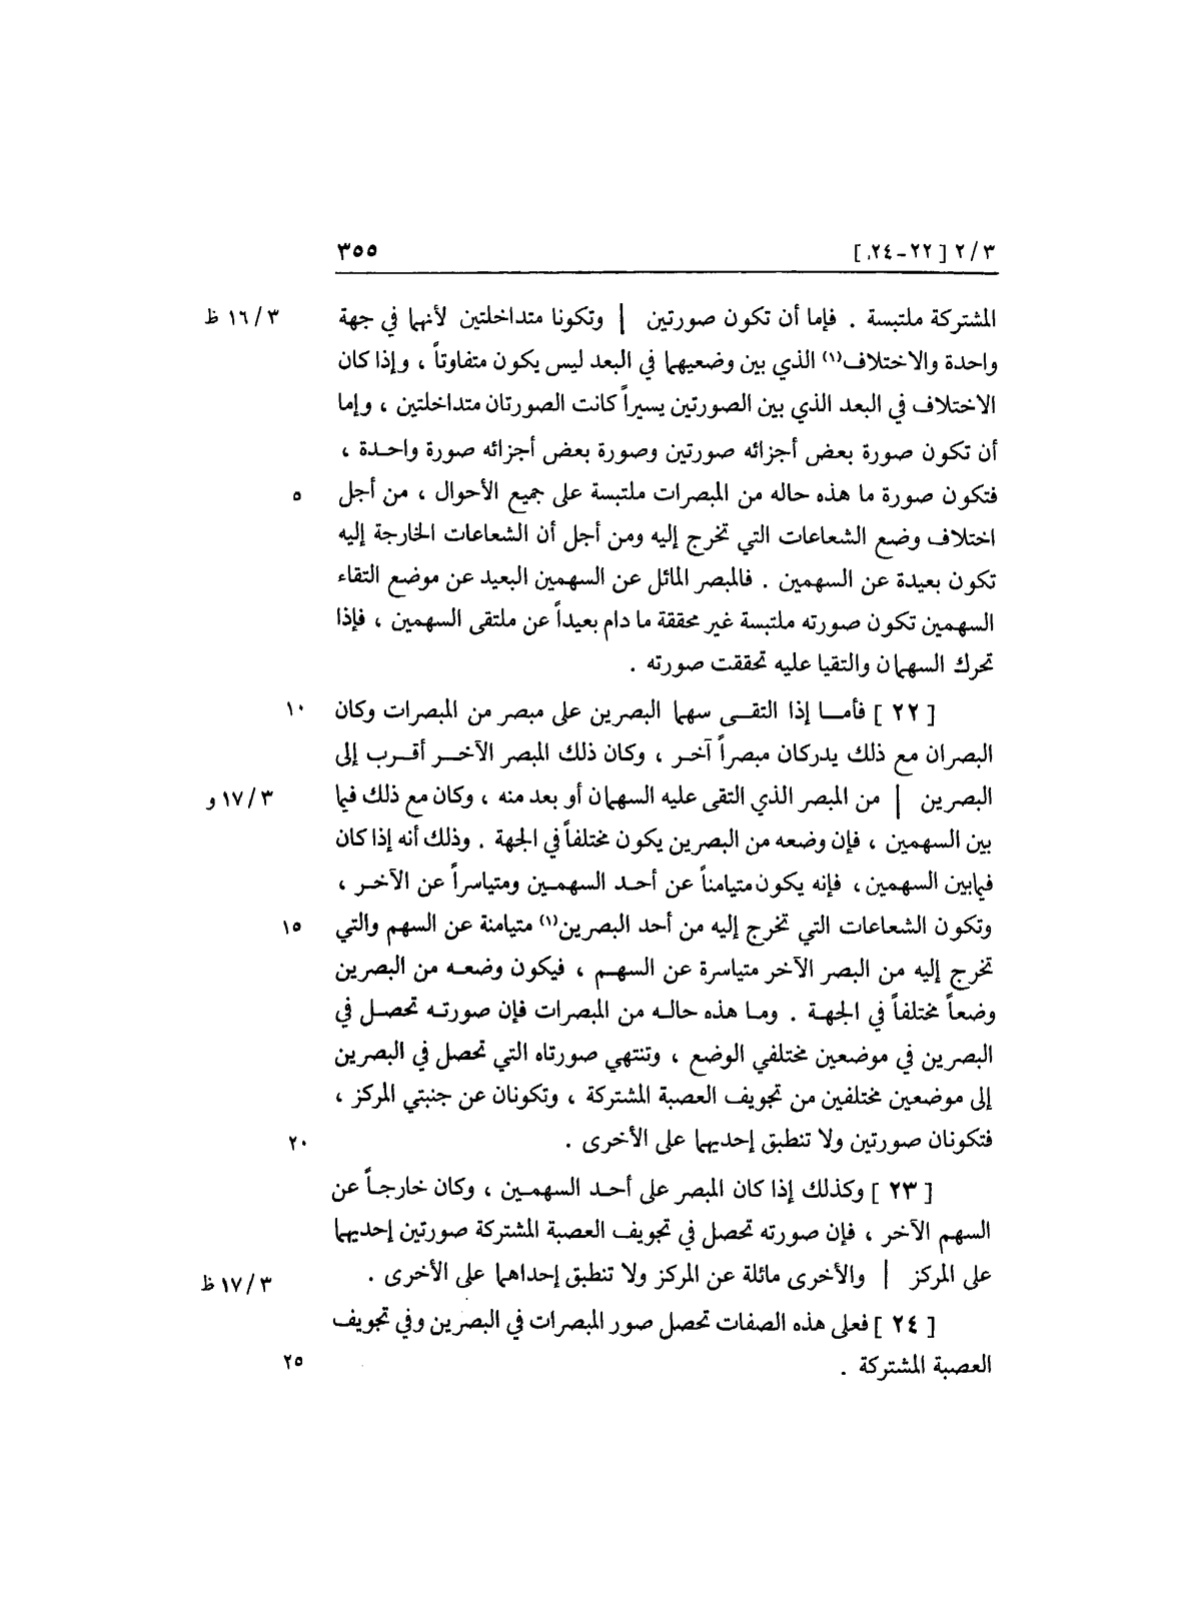 ٢/٣ [٢٢-٢٤] ٣٥٥
المشتركة ملتبسة . فإما أن تكون صورتين | وتكونا متداخلتين لأنهما في جهة ٣/١٦ ظ
واحدة والاختلاف(١) الذي بين وضعيهما في البعد ليس يكون متفاوتاً ، وإذا كان
الاختلاف في البعد الذي بين الصورتين يسيراً كانت الصورتان متداخلتين ، وإما
أن تكون صورة بعض أجزائه صورتين وصورة بعض أجزائه صورة واحدة ،
فتكون صورة ما هذه حاله من المبصرات ملتبسة على جميع الأحوال ، من أجل ٥
اختلاف وضع الشعاعات التي تخرج إليه ومن أجل أن الشعاعات الخارجة إليه
تكون بعيدة عن السهمين . فالمبصر المائل عن السهمين البعيد عن موضع التقاء
السهمين تكون صورته ملتبسة غير محققة ما دام بعيداً عن ملتقى السهمين ، فإذا
تحرك السهمان والتقيا عليه تحققت صورته .
[ ٢٢ ] فأما إذا التقى سهما البصرين على مبصر من المبصرات وكان ١٠
البصران مع ذلك يدركان مبصراً آخر ، وكان ذلك المبصر الآخر أقرب إلى
البصرين | من المبصر الذي التقى عليه السهمان أو بعد منه ، وكان مع ذلك فيما ٣/١٧ و
بين السهمين ، فإن وضعه من البصرين يكون مختلفاً في الجهة . وذلك أنه إذا كان
فيما بين السهمين، فإنه يكون متيامناً عن أحد السهمين ومتياسراً عن الآخر ،
وتكون الشعاعات التي تخرج إليه من أحد البصرين(١) متيامنة عن السهم والتي ١٥
تخرج إليه من البصر الآخر متياسرة عن السهم ، فيكون وضعه من البصرين
وضعاً مختلفاً في الجهة . وما هذه حاله من المبصرات فإن صورته تحصل في
البصرين في موضعين مختلفي الوضع ، وتنتهي صورتاه التي تحصل في البصرين
إلى موضعين مختلفين من تجويف العصبة المشتركة ، وتكونان عن جنبتي المركز ،
فتكونان صورتين ولا تنطبق إحديهما على الأخرى . ٢٠
[ ٢٣ ] وكذلك إذا كان المبصر على أحد السهمين ، وكان خارجاً عن
السهم الآخر ، فإن صورته تحصل في تجويف العصبة المشتركة صورتين إحديهما
على المركز | والأخرى مائلة عن المركز ولا تنطبق إحداهما على الأخرى . ٣/١٧ ظ
[ ٢٤ ] فعلى هذه الصفات تحصل صور المبصرات في البصرين وفي تجويف
العصبة المشتركة . ٢٥